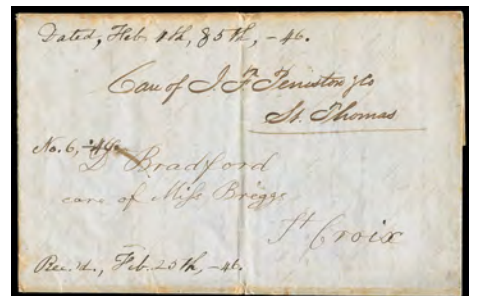 Dated, Feb 4th, & 5th, -46.
Care of J. F. Teniston & Co
St. Thomas
No. 6, -46.
D Bradford
care of Miss Briggs
St Croix
Rec'd., Feb. 25th, -46.